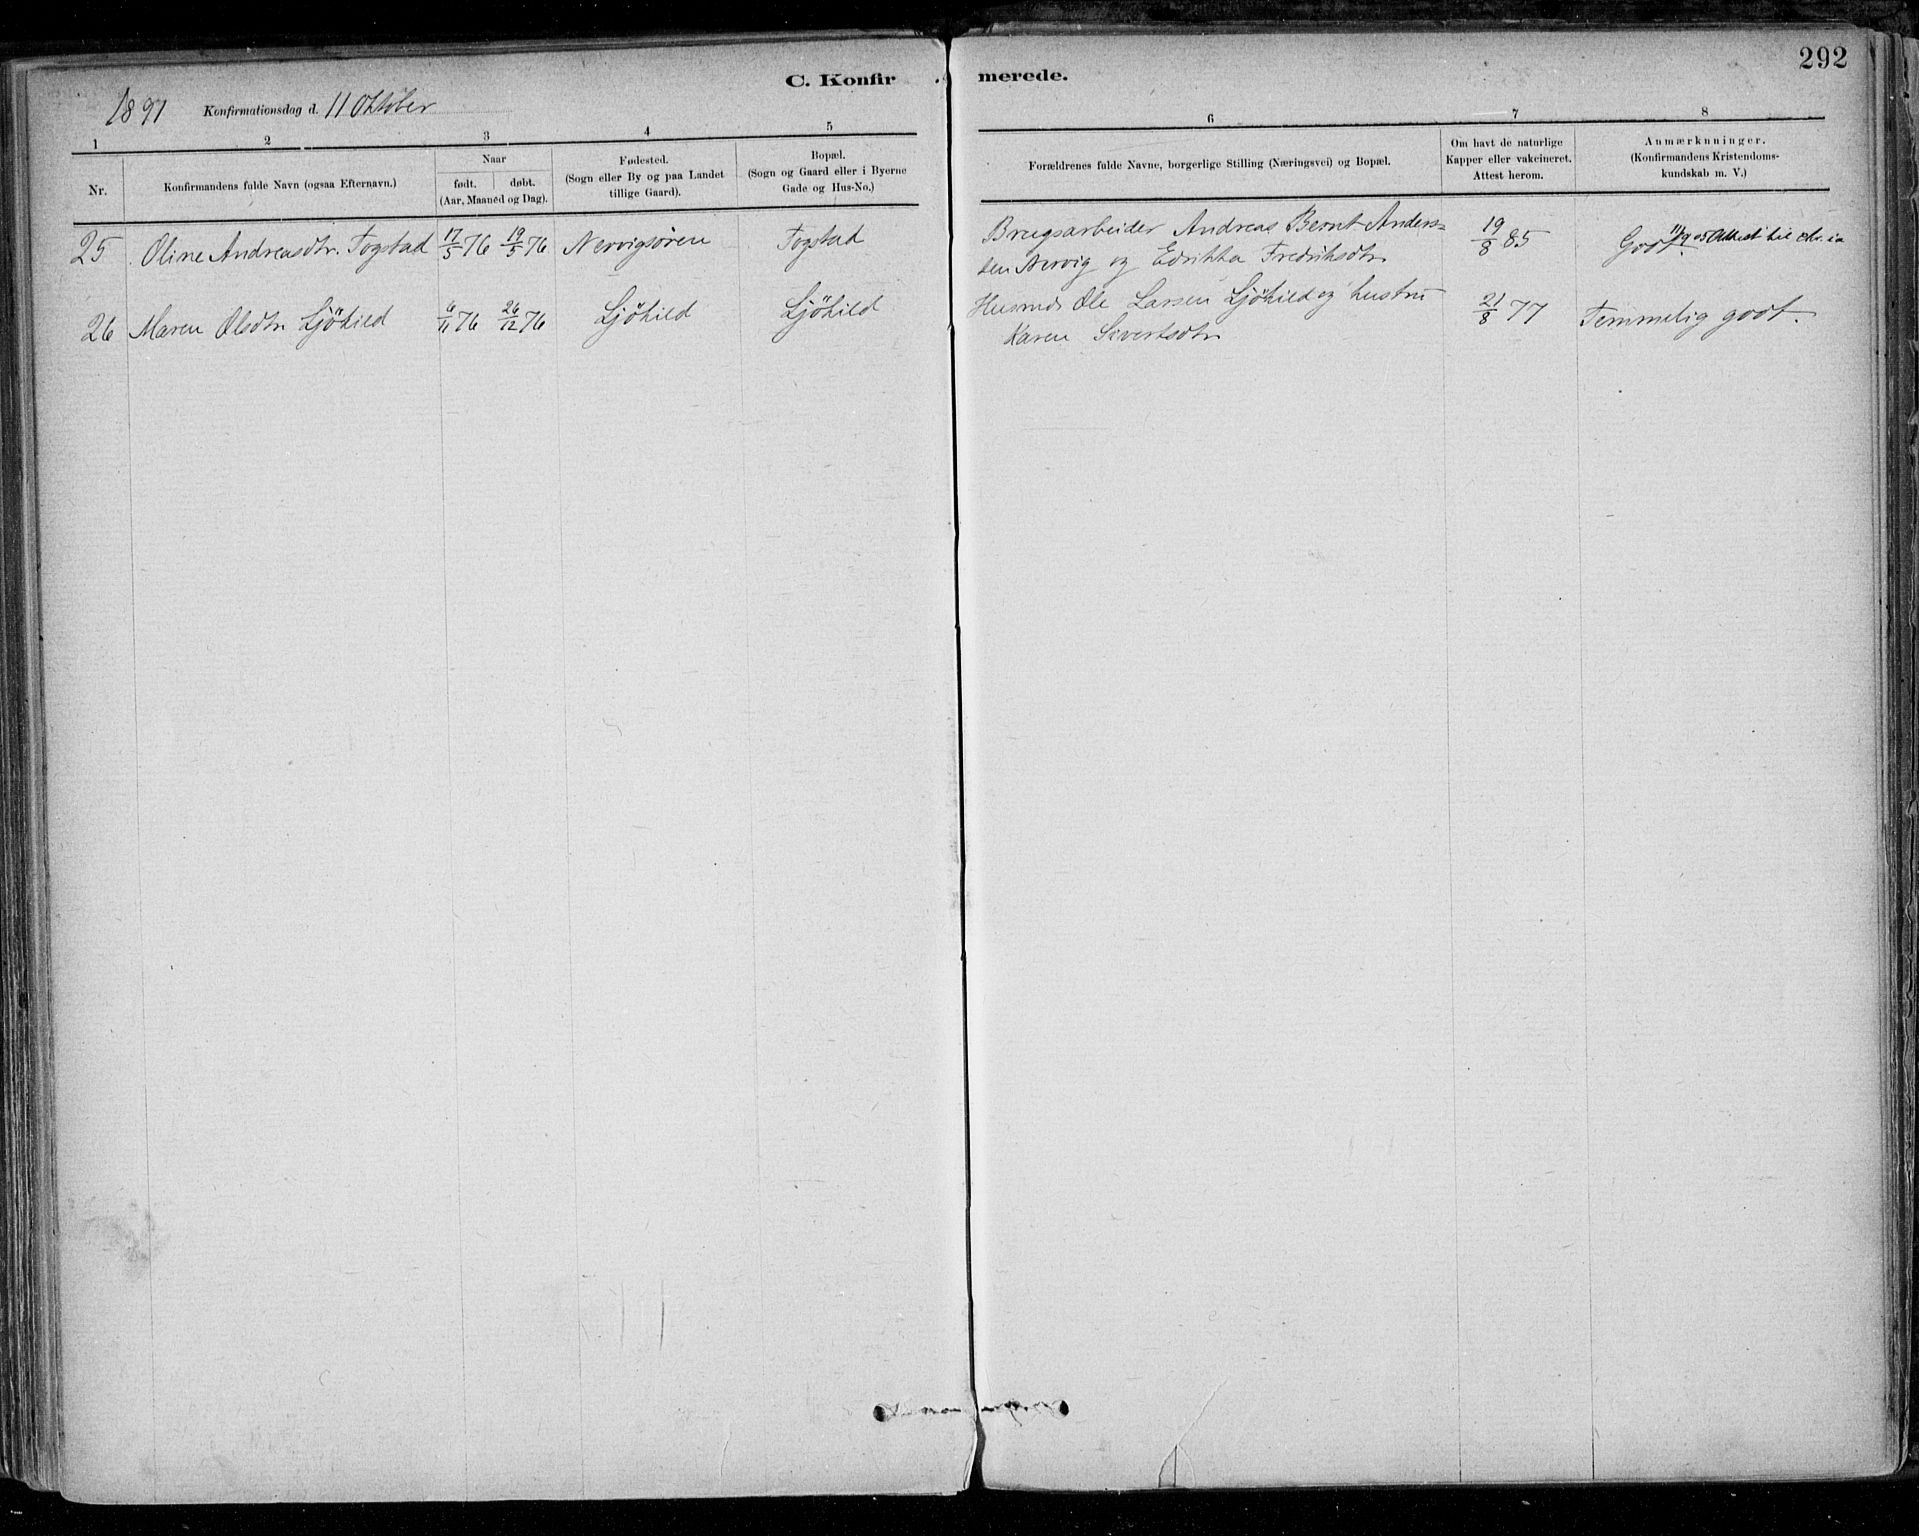 C. Konfirmerede.
292
1891 Konfirmationsdag d. 11 Oktober
1 2 3 4 5 6 7 8
Nr.
Konfirmandens fulde Navn (ogsaa Efternavn.)
Naar
født. døbt.
(Aar, Maaned og Dag).
Fødested.
(Sogn eller By og paa Landet
tillige Gaard).
Bopæl.
(Sogn og Gaard eller i Byerne
Gade og Hus-No.)
Forældrenes fulde Navne, borgerlige Stilling (Næringsvei) og Bopæl.
Om havt de naturlige
Kapper eller vakcineret.
Attest herom.
Anmærkninger.
(Konfirmandens Kristendoms-
kundskab m. V.)
25 Oline Andreasdtr. Fogstad 17/5 76 19/5 76 Nervigsøren Fogstad Brugsarbeider Andreas Bernt Anders-
sen Nervig og Edrikka Fredriksdtr 19/8 85 Godt. 11/9 05 Attest til Chr.ia
26 Maren Olsdtr Ljøkild 6/11 76 26/12 76 Ljøkild Ljøkild Husmd. Ole Larsen Ljøkild og hustru
Karen Sivertsdtr 21/8 77 Temmelig godt.